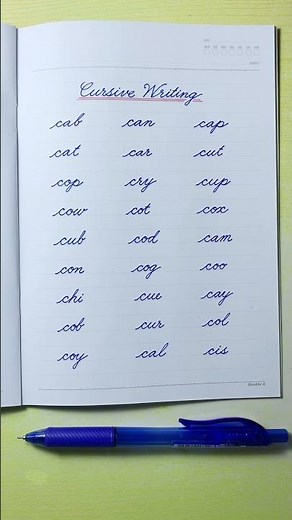 Cursive Writing
cab can cap
cat car cut
cop cry cup
cow cot cox
cub cod cam
con cog coo
chi cue cay
cob cur col
coy cal cis